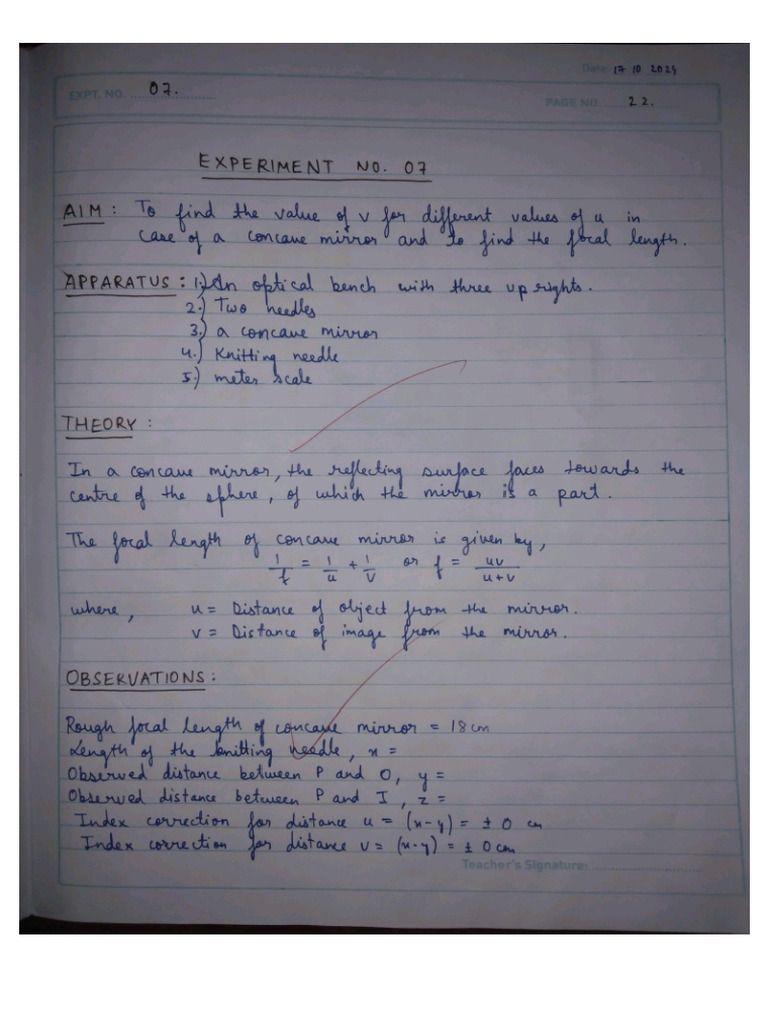 Date: 17 10 2024
EXPT. NO. 07.
PAGE NO. 22.
EXPERIMENT NO. 07
AIM : To find the value of v for different values of u in
case of a concave mirror and to find the focal length.
APPARATUS : 1.) An optical bench with three uprights.
2.) Two needles
3.) a concave mirror
4.) Knitting needle
5.) meter scale
THEORY :
In a concave mirror, the reflecting surface faces towards the
centre of the sphere, of which the mirror is a part.
The focal length of concave mirror is given by,
1/f = 1/u + 1/v or f = uv/u+v
where, u = Distance of object from the mirror.
v = Distance of image from the mirror.
OBSERVATIONS :
Rough focal length of concave mirror = 18 cm
Length of the knitting needle, x =
Observed distance between P and O, y =
Observed distance between P and I, z =
Index correction for distance u = (x-y) = ± 0 cm
Index correction for distance v = (x-y) = ± 0 cm
Teacher's Signature: